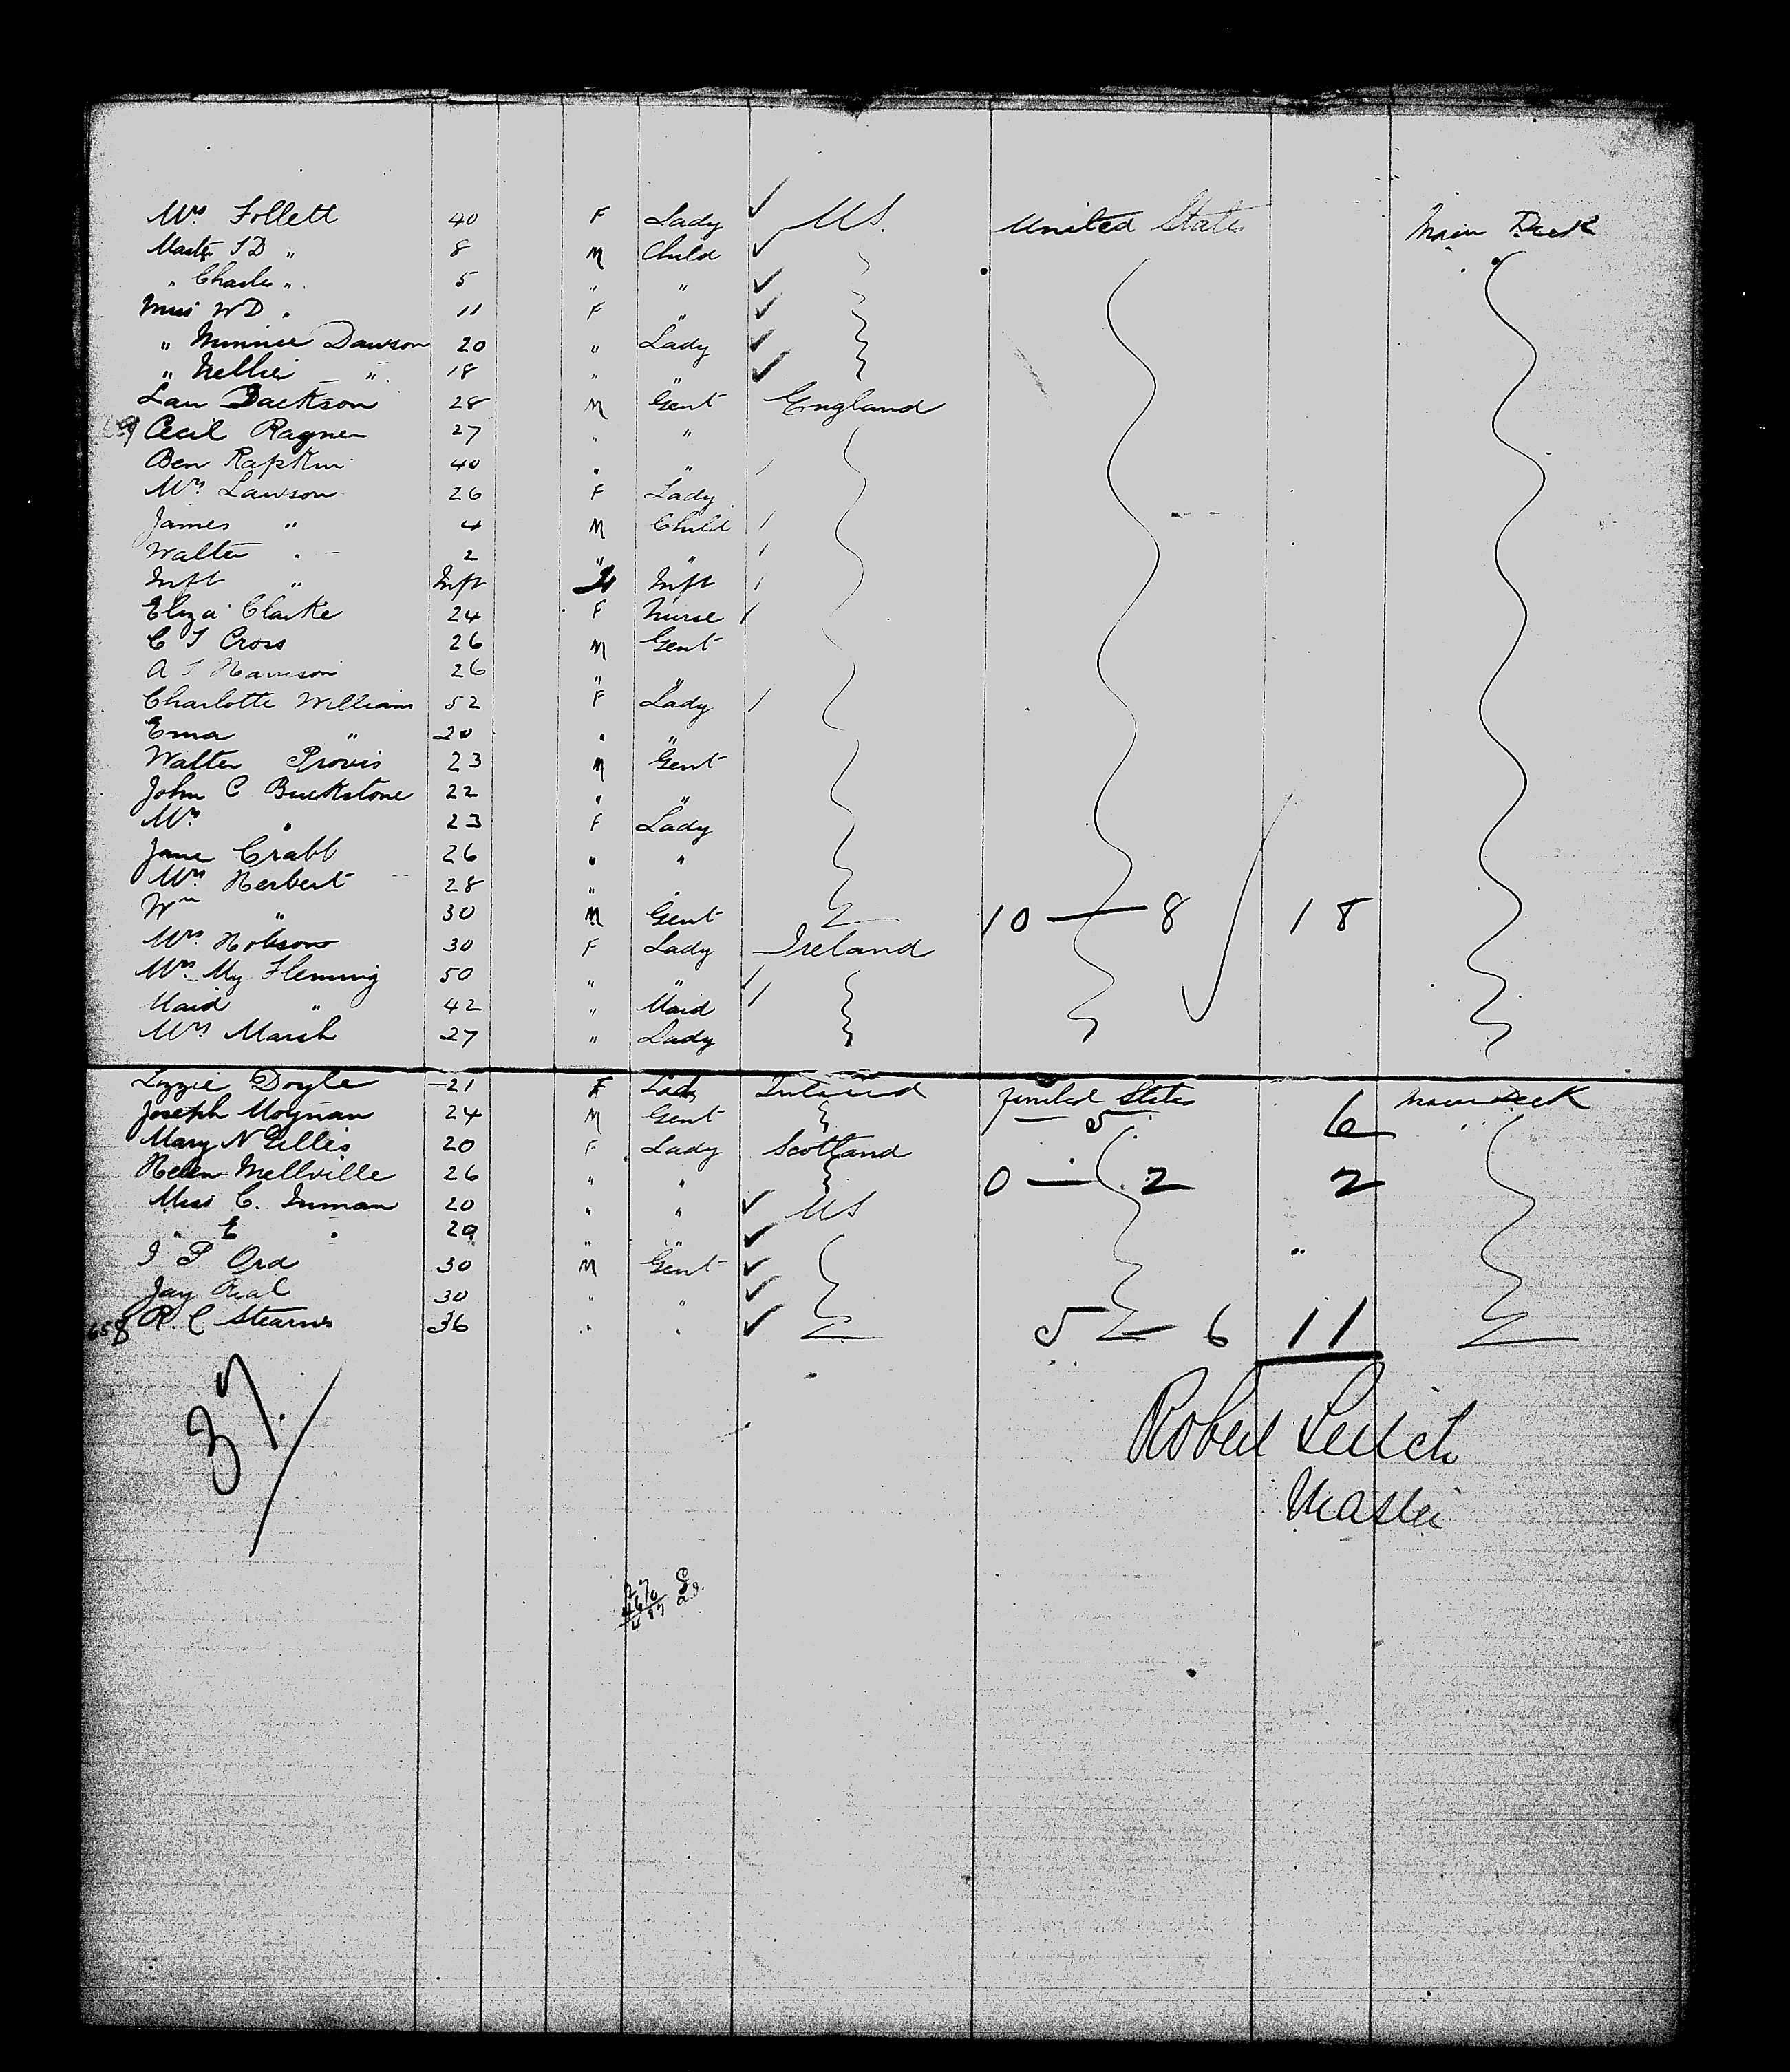 Mrs Follett 40 F Lady U.S. United States Main Deck
Mastr " 8 M Child
" Charles " 5 " "
Miss WD " 11 F "
" Minnie Dawson 20 " Lady
" Nellie " 18 " "
Jackson 28 M Gent England
Cecil Rayner 27 " "
Ben Rapkin 40 " "
Mrs Lawson 26 F Lady
James " 4 M Child
Walter " 2 " "
Inft " Inft Inft
Eliza Clarke 24 F Nurse
Cross 26 M Gent
26 " "
Charlotte William 52 F Lady
Ema " 20 " "
Walter Provis 23 M Gent
John C Buckstone 22 " "
Mrs " 23 F Lady
Jane Crabb 26 " "
Mrs Herbert 28 " "
Wm " 30 M Gent 10 — 8 18
Mrs Hobson 30 F Lady Ireland
Mrs My Fleming 50 " "
Maid " 42 " Maid
Mrs Marsh 27 " Lady
Lizzie Doyle 21 F Lady Ireland United States Main Deck
Joseph Moynan 24 M Gent 1 — 5 6
Mary N Gillis 20 F Lady Scotland
Helen Mellville 26 " " 0 — 2 2
Miss C. Inman 20 " " US
" E " 20 " "
Ord 30 M Gent
Jay 30 " "
R. C Stearns 36 " " 5 — 6 11
37
Robert Leitch
Master